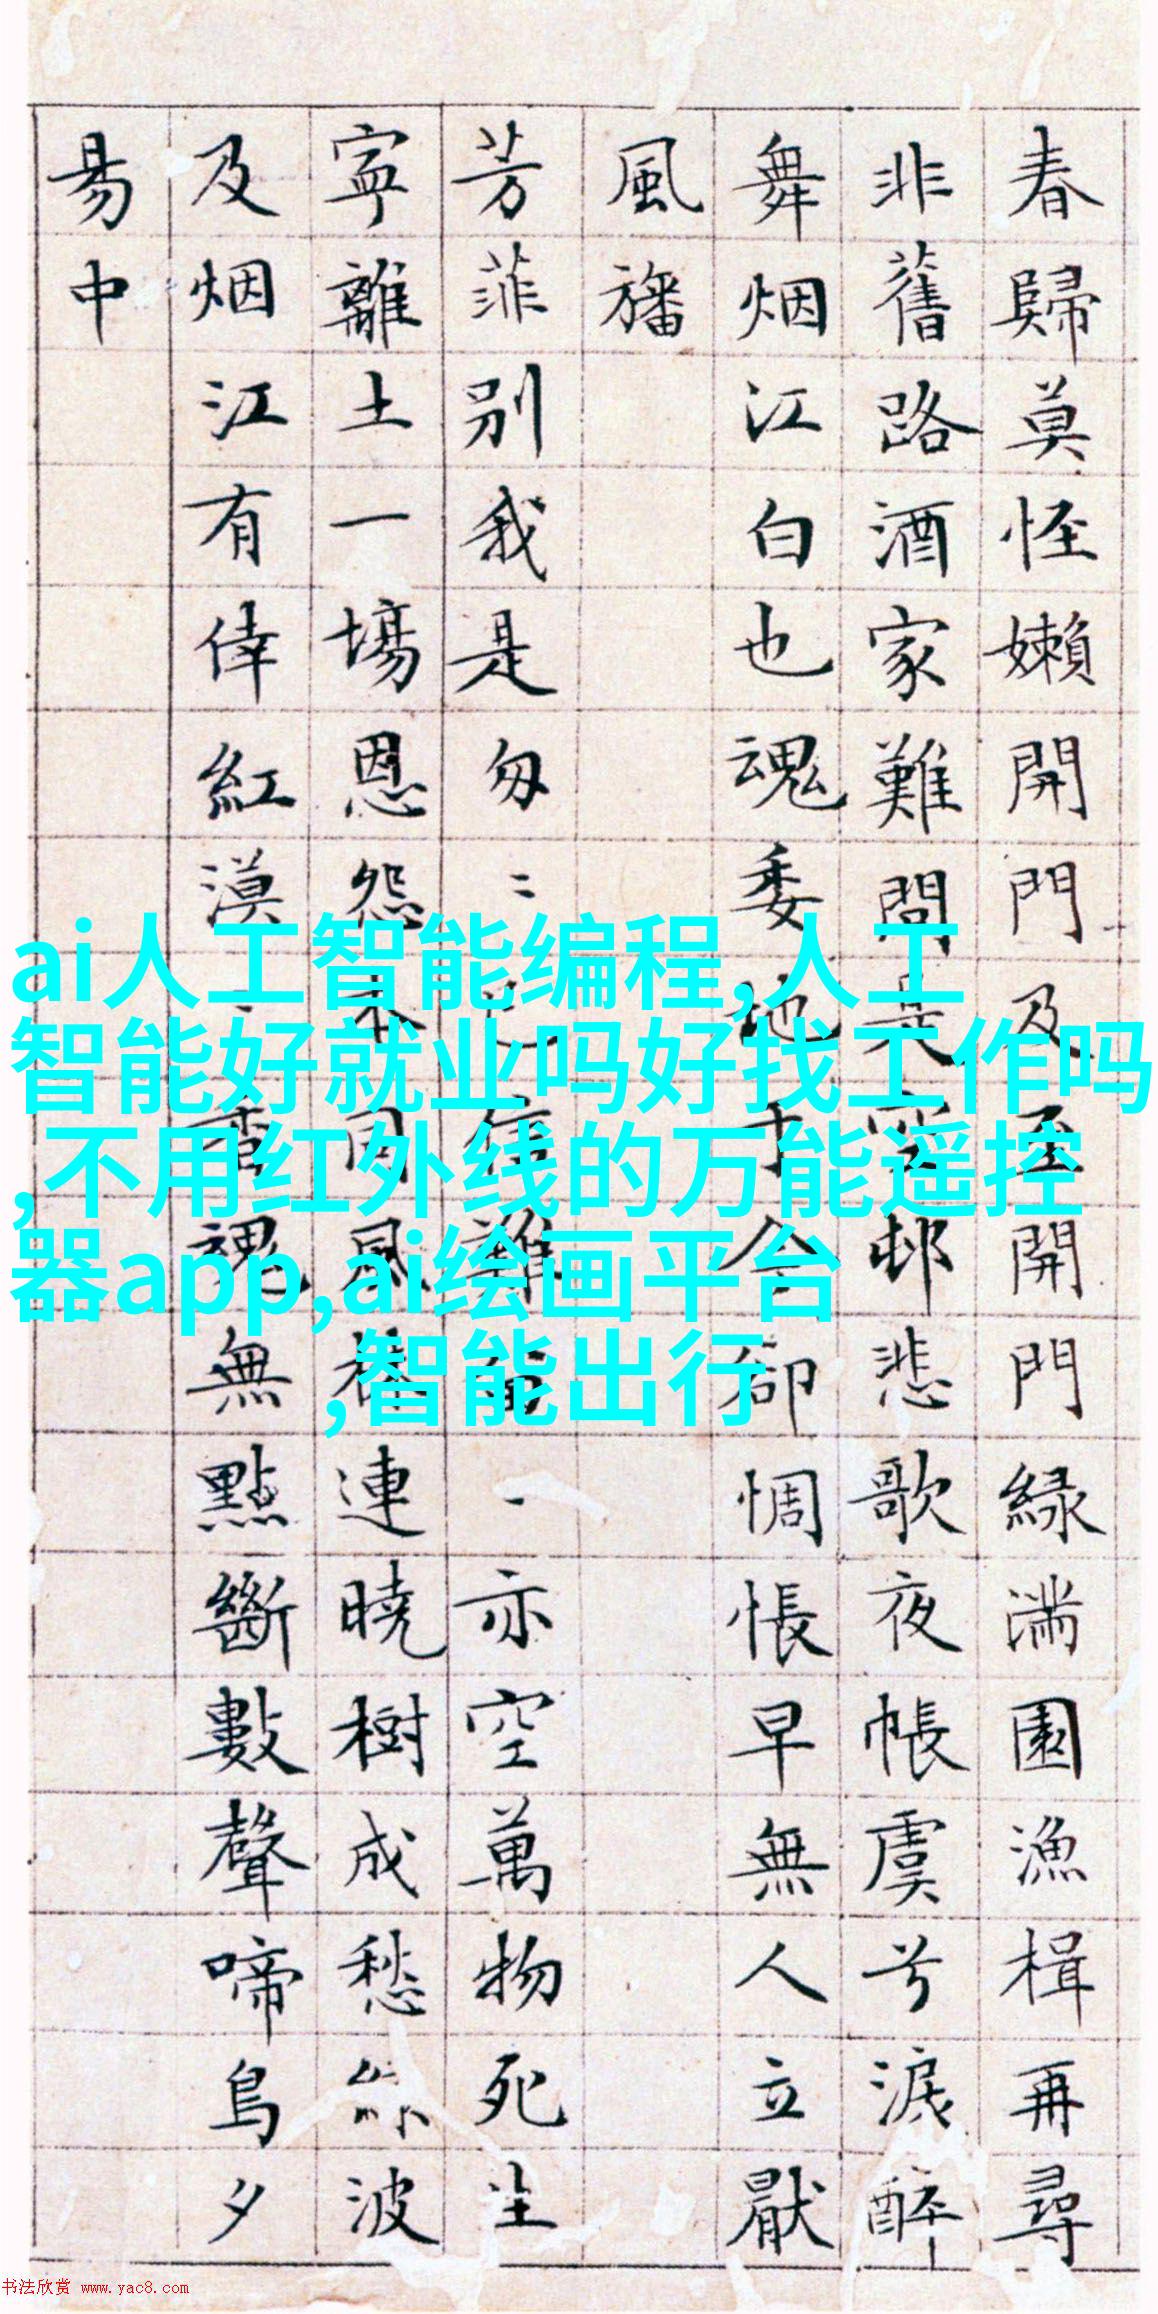 春歸莫恠嬾開門及至開門緑滿園漁楫再尋
非舊路酒家難問是空邨悲歌夜帳虞兮淚醉
舞烟江白也魂委地于今却惆悵早無人立厭
風旛
芳菲別我是匆〻已信難留一亦空萬物死生
寧離土一塲恩怨本同風株連曉樹成愁綠波
及烟江有倖紅漠〻香魂無點斷數聲啼鳥夕
易中
ai人工智能编程,人工
智能好就业吗好找工作吗
,不用红外线的万能遥控
器app,ai绘画平台
,智能出行
书法欣赏 www.yac8.com